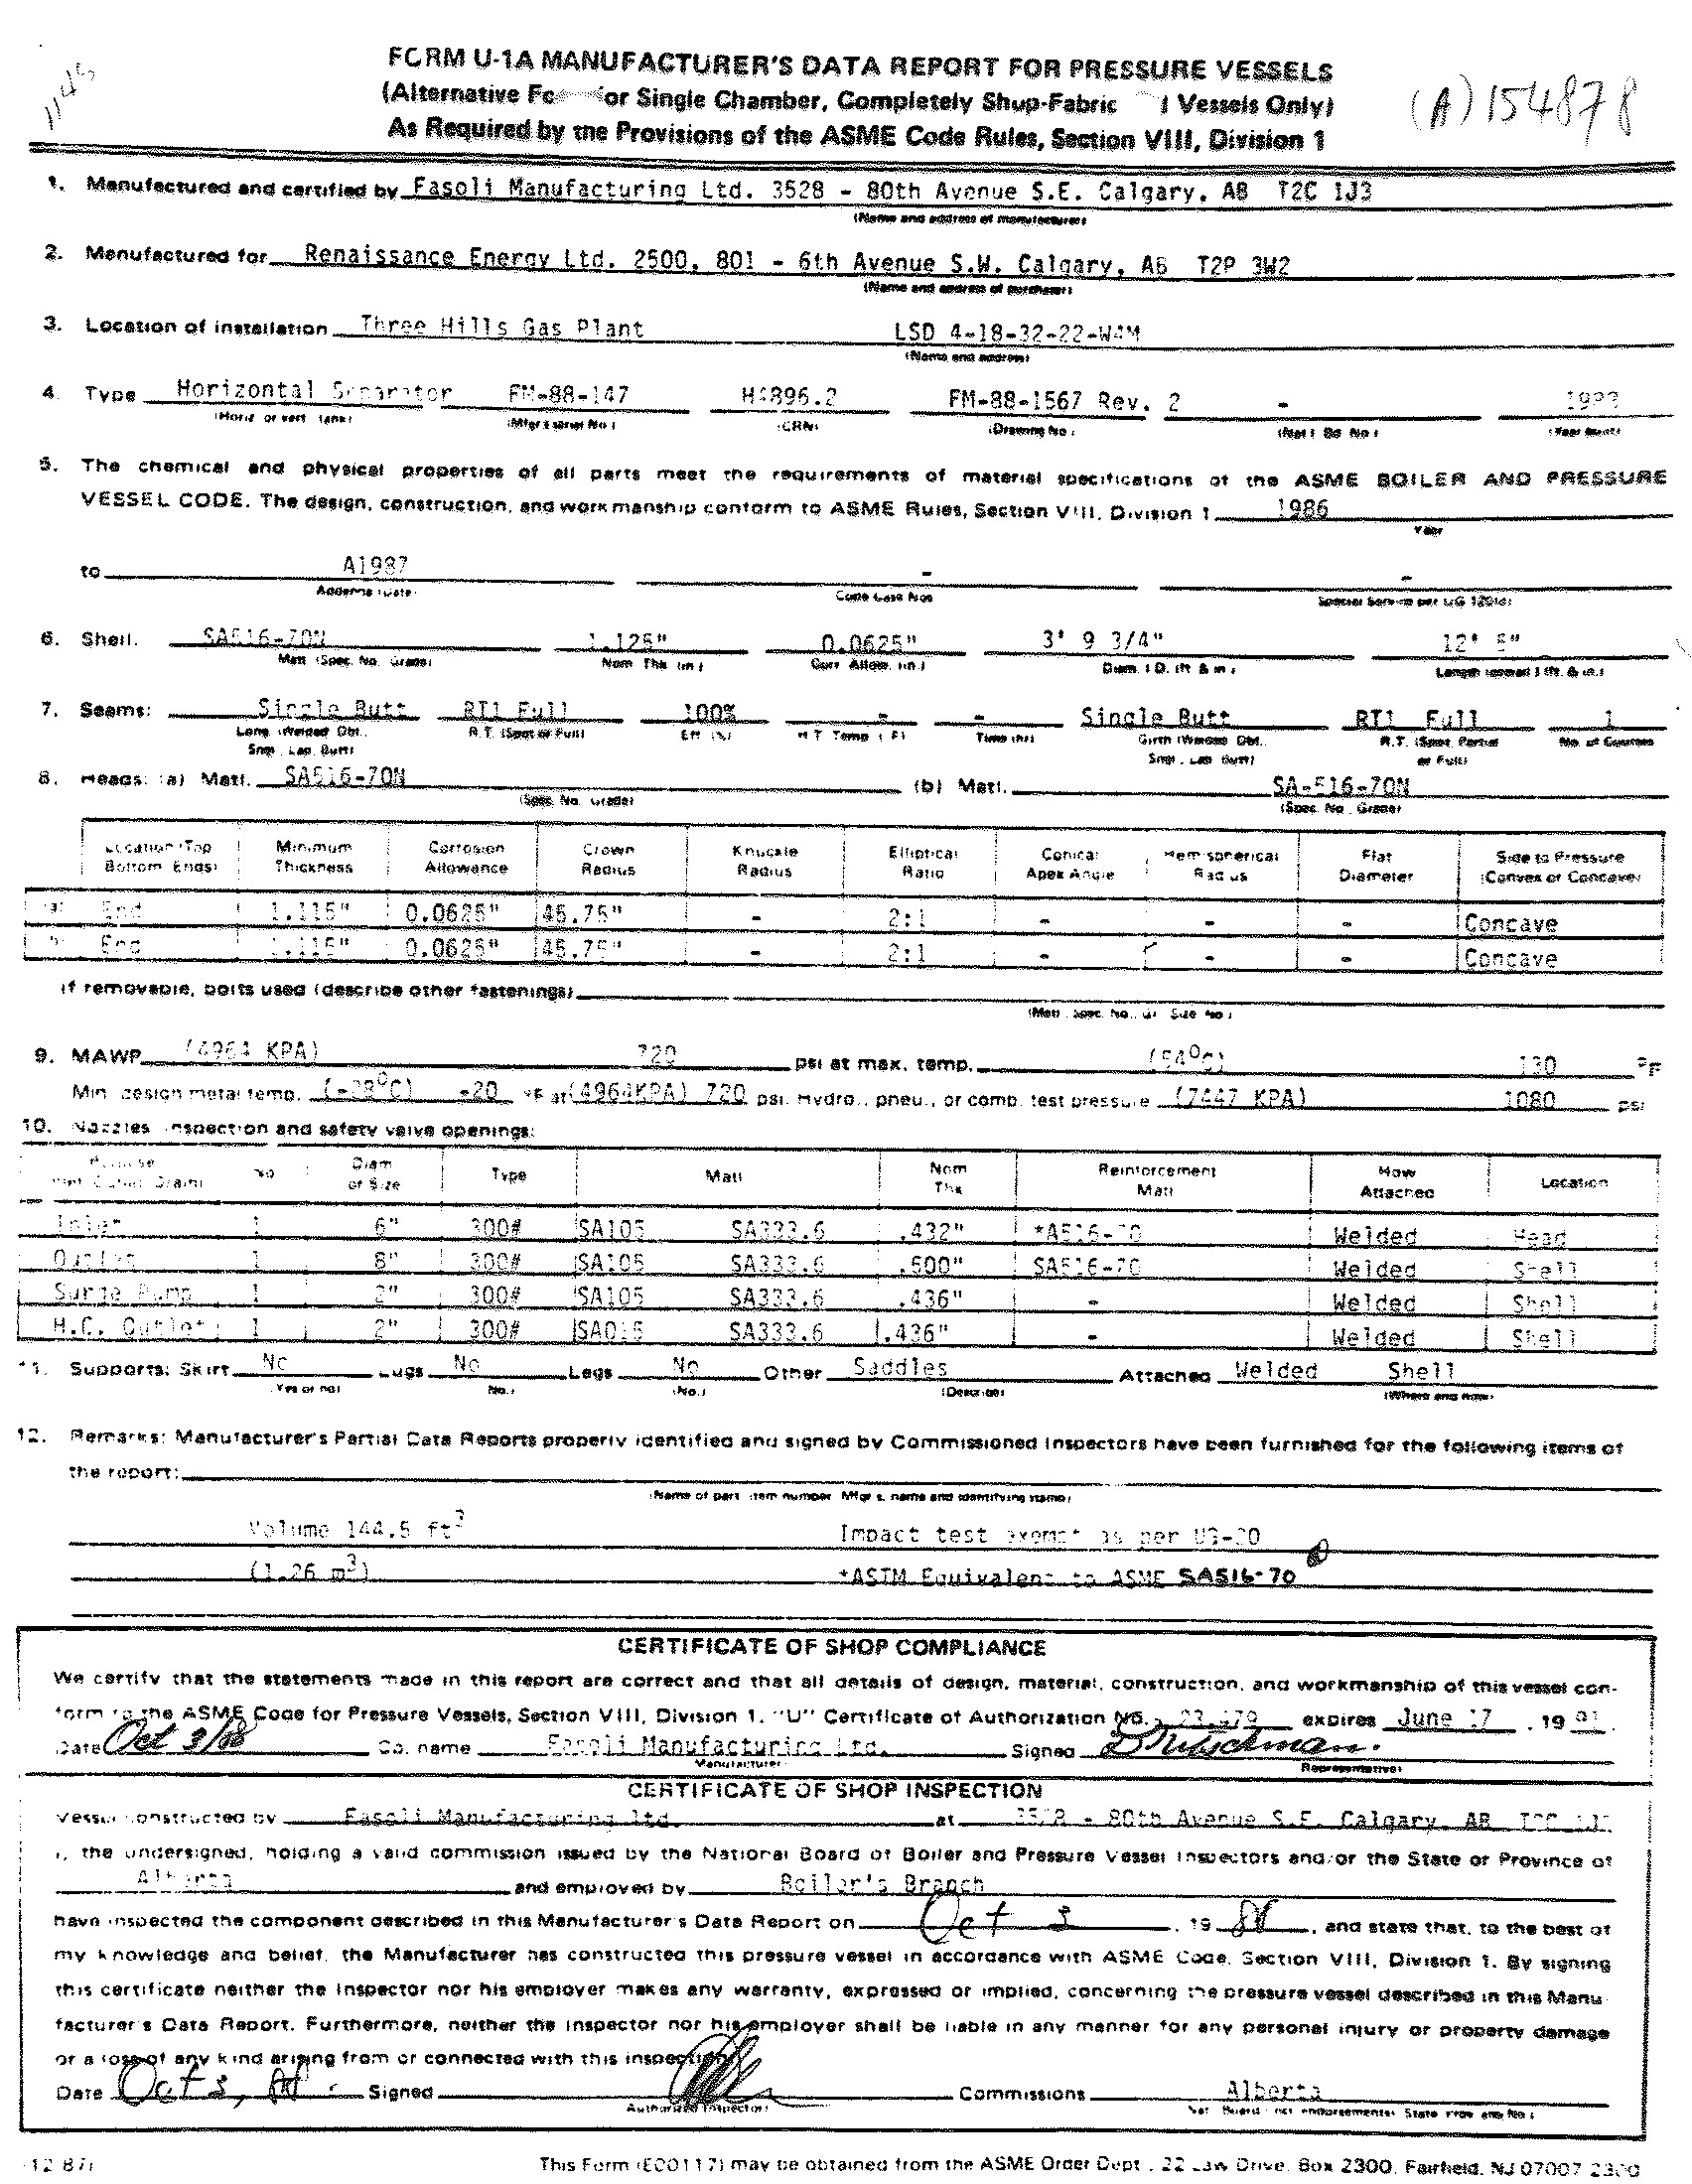 1145
FORM U-1A MANUFACTURER'S DATA REPORT FOR PRESSURE VESSELS
(Alternative Fo or Single Chamber, Completely Shop-Fabric d Vessels Only)
(A)154878
As Required by the Provisions of the ASME Code Rules, Section VIII, Division 1
1. Manufactured and certified by Fasoli Manufacturing Ltd. 3528 - 80th Avenue S.E. Calgary, AB T2C 1J3
(Name and address of manufacturer)
2. Manufactured for Renaissance Energy Ltd. 2500, 801 - 6th Avenue S.W. Calgary, AB T2P 3W2
(Name and address of purchaser)
3. Location of installation Three Hills Gas Plant LSD 4-18-32-22-W4M
(Name and address)
4. Type Horizontal Separator FM-88-147 FM-88-1567 Rev. 2 -
(Horiz. or vert. tank) (Mfgr's serial No.) (CRN) (Drawing No.) (Nat'l Bd. No.) (Year built)
5. The chemical and physical properties of all parts meet the requirements of material specifications of the ASME BOILER AND PRESSURE
VESSEL CODE. The design, construction, and workmanship conform to ASME Rules, Section VIII, Division 1 1986
Year
to A1987 - -
Addenda (Date) Code Case Nos. Special Service per UG-120(d)
6. Shell: SA516-70N 1.125" 0.0625" 3' 9 3/4" 12'
Matl. (Spec. No., Grade) Nom. Thk. (in.) Corr. Allow. (in.) Diam. I.D. (ft. & in.) Length (overall) (ft. & in.)
7. Seams: Single Butt RT1 Full 100% - - Single Butt RT1 Full 1
Long. (Welded Dbl., R.T. (Spot or Full) Eff. (%) H.T. Temp (°F) Time (hr) Girth (Welded Dbl., R.T. (Spot, Partial No. of Courses
Sngl., Lap, Butt) Sngl., Lap, Butt) or Full)
8. Heads: (a) Matl. SA516-70N (b) Matl. SA-516-70N
(Spec. No., Grade) (Spec. No., Grade)
Location (Top Minimum Corrosion Crown Knuckle Elliptical Conical Hemispherical Flat Side to Pressure
Bottom Ends) Thickness Allowance Radius Radius Ratio Apex Angle Radius Diameter (Convex or Concave)
(a) End 1.115" 0.0625" 45.75" - 2:1 - - - Concave
(b) End 1.115" 0.0625" 45.75" - 2:1 - - - Concave
If removable, bolts used (describe other fastenings)
(Matl., Spec. No., Gr., Size, No.)
9. MAWP (4964 KPA) 720 psi at max. temp. (54°C) 130 °F
Min. design metal temp. -20 °F at (4964KPA) 720 psi. Hydro., pneu., or comb. test pressure (7447 KPA) 1080 psi
10. Nozzles inspection and safety valve openings:
Purpose No. Diam. Type Matl. Nom. Reinforcement How Location
or Size Thk. Matl. Attached
Inlet 1 6" 300# SA105 SA333.6 .432" *A516-70 Welded Head
Outlet 1 8" 300# SA105 SA333.6 .500" SA516-70 Welded Shell
Surge Pump 1 2" 300# SA105 SA333.6 .436" - Welded Shell
H.C. Outlet 1 2" 300# SA015 SA333.6 .436" - Welded Shell
11. Supports: Skirt No Lugs No Legs No Other Saddles Attached Welded Shell
(Yes or no) (No.) (No.) (Describe) (Where and how)
12. Remarks: Manufacturer's Partial Data Reports properly identified and signed by Commissioned Inspectors have been furnished for the following items of
the report:
(Name of part, item number, Mfgr's. name and identifying stamp)
Volume 144.5 ft3 Impact test exempt as per UG-20
(1.26 m3) *ASTM Equivalent to ASME SA516-70
CERTIFICATE OF SHOP COMPLIANCE
We certify that the statements made in this report are correct and that all details of design, material, construction, and workmanship of this vessel con-
form to the ASME Code for Pressure Vessels, Section VIII, Division 1. "U" Certificate of Authorization No. expires June 17, 19
Date Oct 3/88 Co. name Fasoli Manufacturing Ltd. Signed
Manufacturer Representative
CERTIFICATE OF SHOP INSPECTION
Vessel constructed by Fasoli Manufacturing Ltd. at 3528 - 80th Avenue S.E. Calgary, AB T2C 1J3
I, the undersigned, holding a valid commission issued by the National Board of Boiler and Pressure Vessel Inspectors and/or the State or Province of
Alberta and employed by Boiler's Branch
have inspected the component described in this Manufacturer's Data Report on Oct 3, 19 88, and state that, to the best of
my knowledge and belief, the Manufacturer has constructed this pressure vessel in accordance with ASME Code, Section VIII, Division 1. By signing
this certificate neither the Inspector nor his employer makes any warranty, expressed or implied, concerning the pressure vessel described in this Manu-
facturer's Data Report. Furthermore, neither the Inspector nor his employer shall be liable in any manner for any personal injury or property damage
or a loss of any kind arising from or connected with this inspection.
Date Oct 3, 88. Signed Commissions Alberta
Authorized Inspector Nat. Board (incl. endorsements) State, Prov. and No.
12/87) This Form (E00117) may be obtained from the ASME Order Dept., 22 Law Drive, Box 2300, Fairfield, NJ 07007-2300